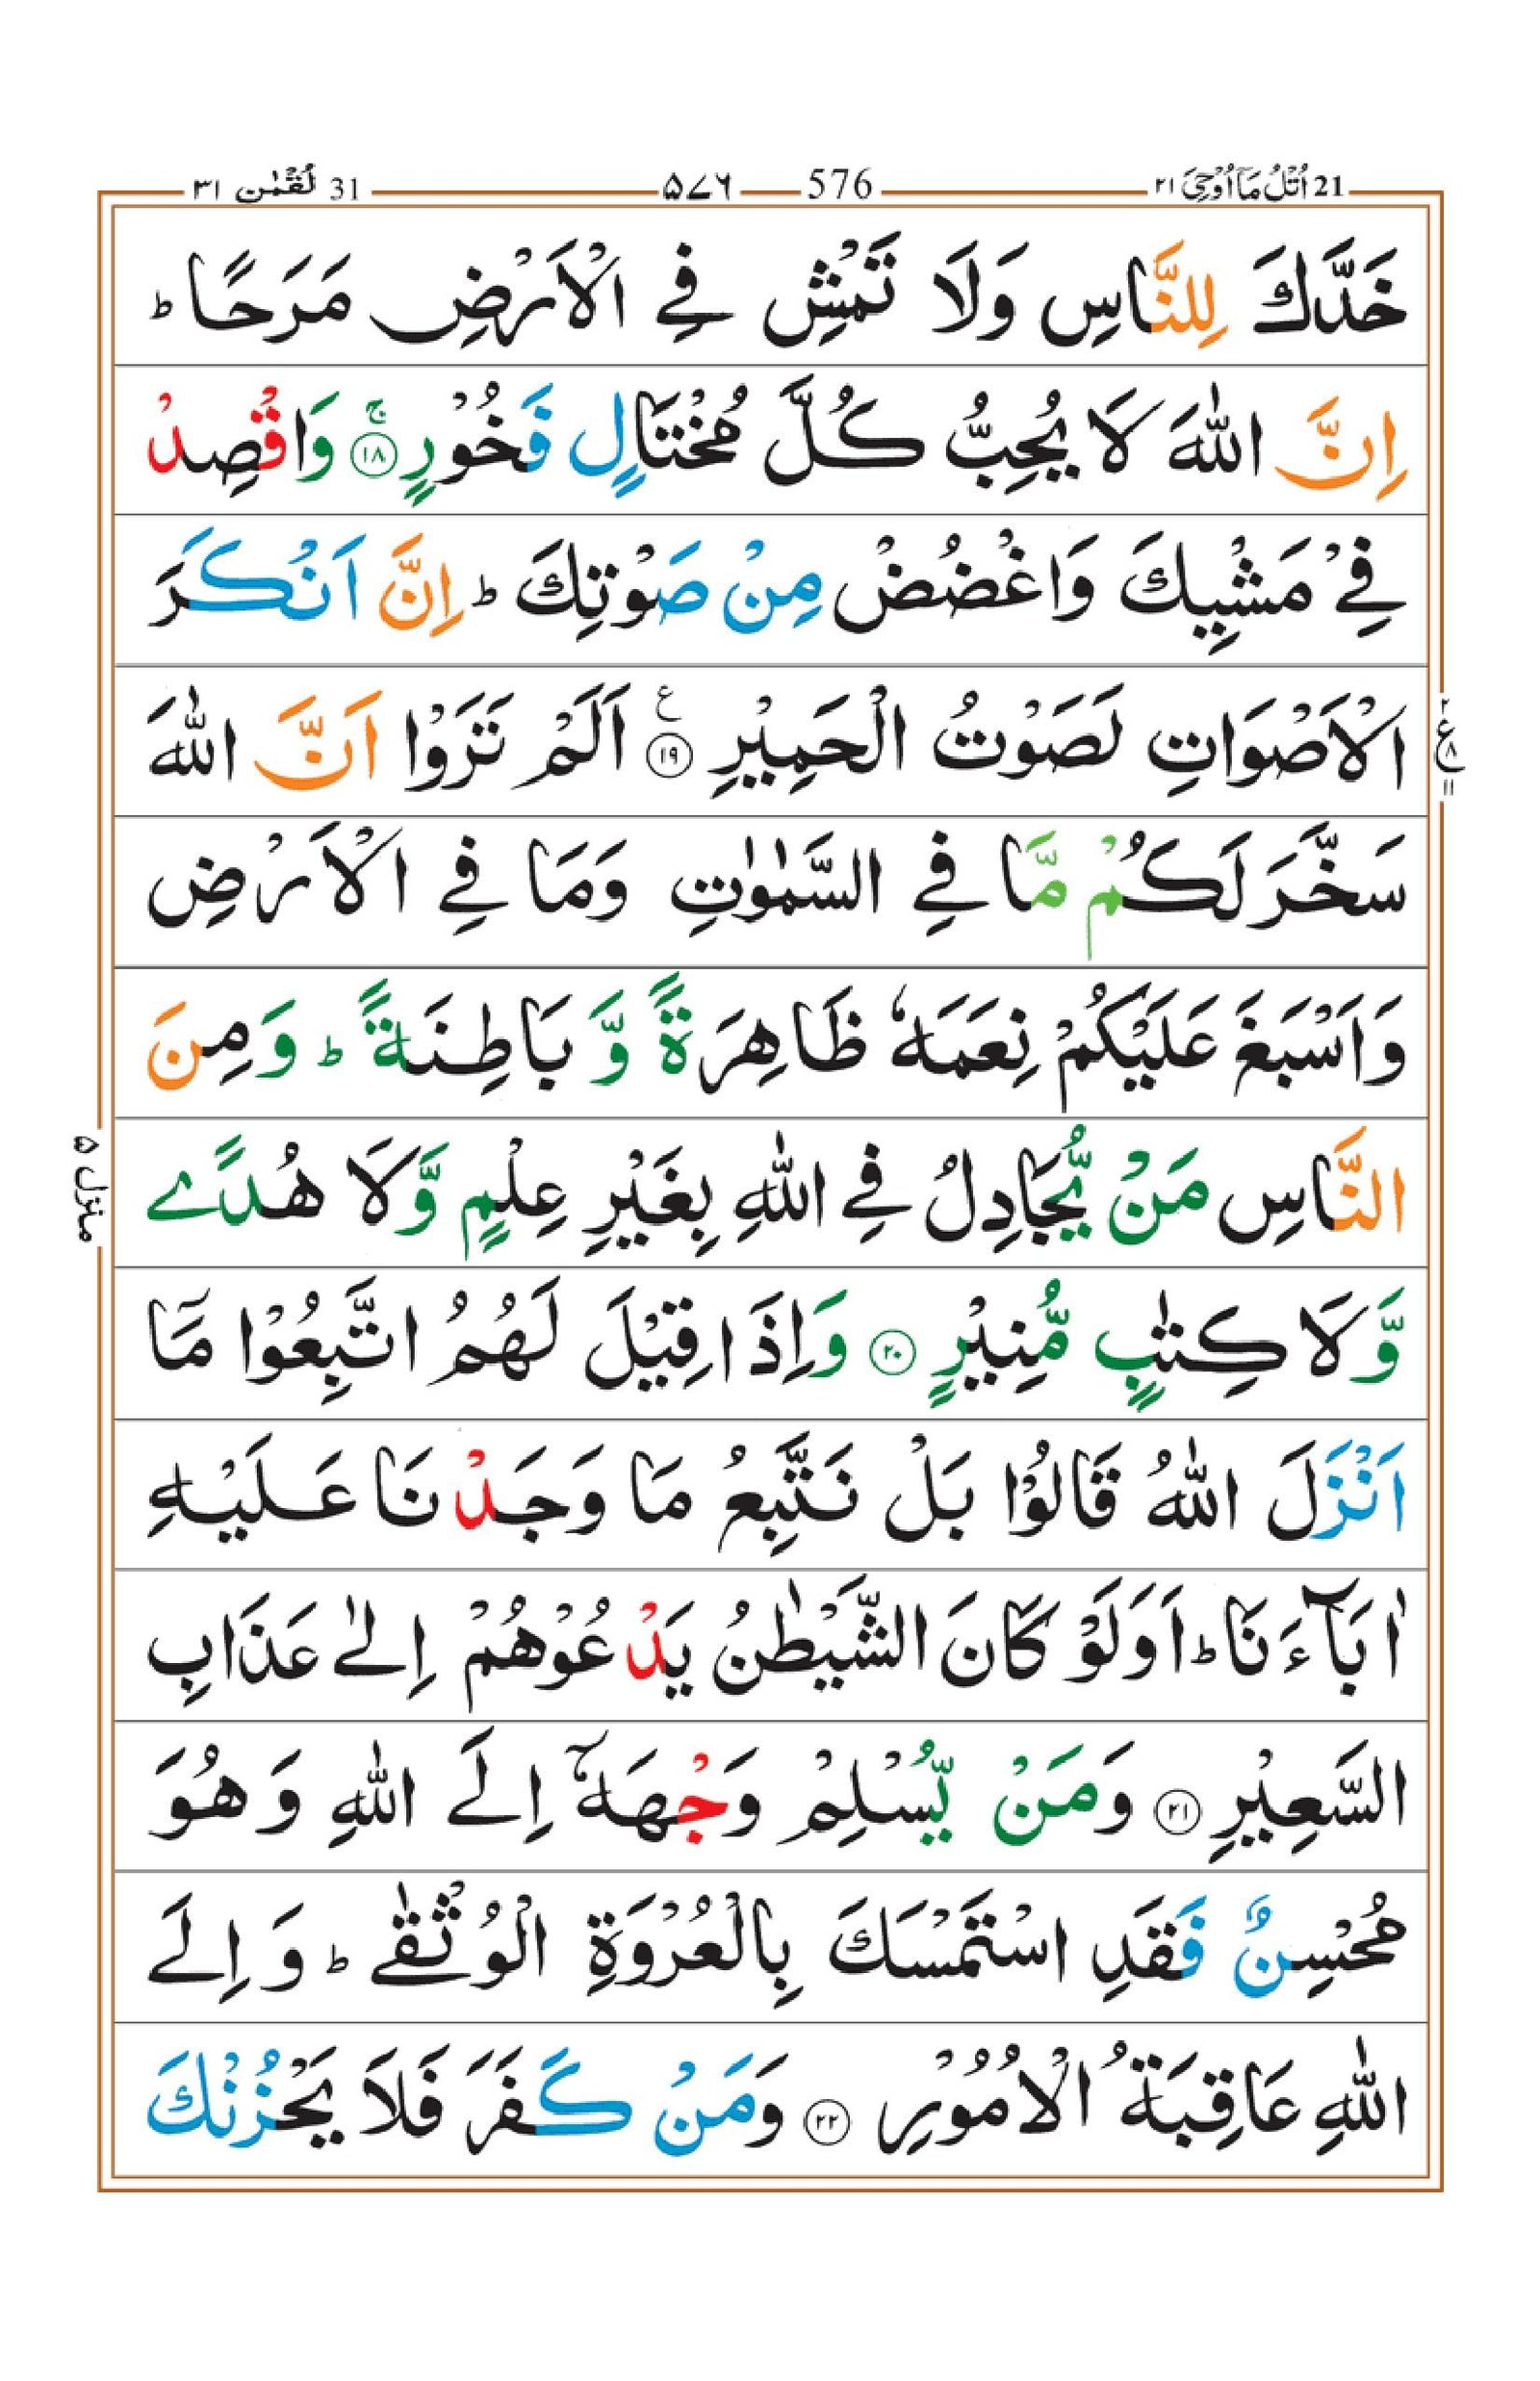 21 اُتْلُ مَاۤ اُوْحِیَ ۲۱ 576 ۵۷۶ 31 لُقْمٰن ۳۱
خَدَّكَ لِلنَّاسِ وَلَا تَمْشِ فِي الْاَرْضِ مَرَحًا ؕ
اِنَّ اللّٰهَ لَا يُحِبُّ كُلَّ مُخْتَالٍ فَخُوْرٍ ۚ ۝۱۸ وَاقْصِدْ
فِيْ مَشْيِكَ وَاغْضُضْ مِنْ صَوْتِكَ ؕ اِنَّ اَنْكَرَ
الْاَصْوَاتِ لَصَوْتُ الْحَمِيْرِ ۝۱۹ ع اَلَمْ تَرَوْا اَنَّ اللّٰهَ
سَخَّرَ لَكُمْ مَّا فِي السَّمٰوٰتِ وَمَا فِي الْاَرْضِ
وَاَسْبَغَ عَلَيْكُمْ نِعَمَهٗ ظَاهِرَةً وَّ بَاطِنَةً ؕ وَمِنَ
النَّاسِ مَنْ يُّجَادِلُ فِي اللّٰهِ بِغَيْرِ عِلْمٍ وَّلَا هُدًے
وَّلَا كِتٰبٍ مُّنِيْرٍ ۝۲۰ وَاِذَا قِيْلَ لَهُمُ اتَّبِعُوْا مَاۤ
اَنْزَلَ اللّٰهُ قَالُوْا بَلْ نَتَّبِعُ مَا وَجَدْنَا عَلَيْهِ
اٰبَآءَنَا ؕ اَوَلَوْ كَانَ الشَّيْطٰنُ يَدْعُوْهُمْ اِلٰے عَذَابِ
السَّعِيْرِ ۝۲۱ وَمَنْ يُّسْلِمْ وَجْهَهٗۤ اِلَے اللّٰهِ وَهُوَ
مُحْسِنٌ فَقَدِ اسْتَمْسَكَ بِالْعُرْوَةِ الْوُثْقٰے ؕ وَ اِلَے
اللّٰهِ عَاقِبَةُ الْاُمُوْرِ ۝۲۲ وَمَنْ كَفَرَ فَلَا يَحْزُنْكَ
منزل ۵